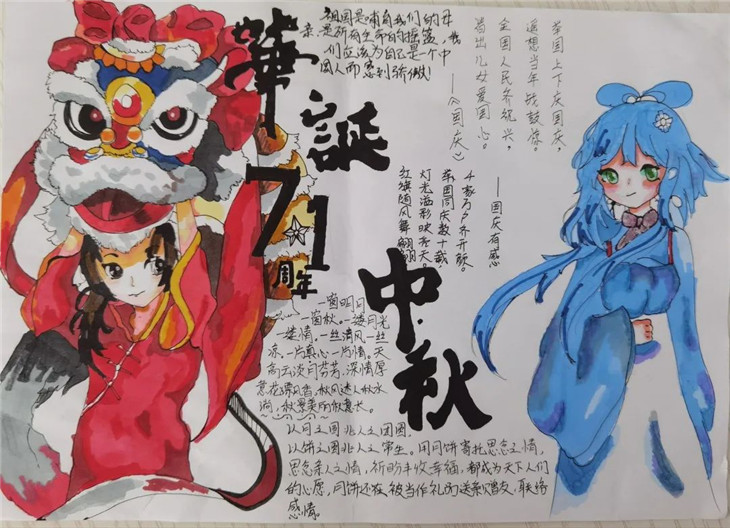 祖国是哺育我们的母
亲,是所有生命的摇篮,我
们应该为自己是一个中
国人而感到骄傲!
——《国庆》
举国上下庆国庆,
遥想当年战鼓作。
全国人民齐统兴,
昌出儿女爱国心。
——国庆有感
千家万户齐开颜。
举国同庆数十载,
灯光溢彩映冬天。
红旗随风舞翩翩
華誕
71
周年
中秋
一窗明月。
一窗秋。一缕月光
一缕情。一丝清风一丝
凉。一片真心一片情。天
高云淡月芬芳,深情厚
意花漂香,秋风迷人秋水
润,秋景美丽秋意长。
以月之圆兆人之团圆,
以饼之圆兆人之常生。用月饼寄托思念之情,
思念亲人之情,祈盼丰收幸福,都成为天下人们
的心愿,月饼还在被当作礼品送亲赠友,联络
感情。